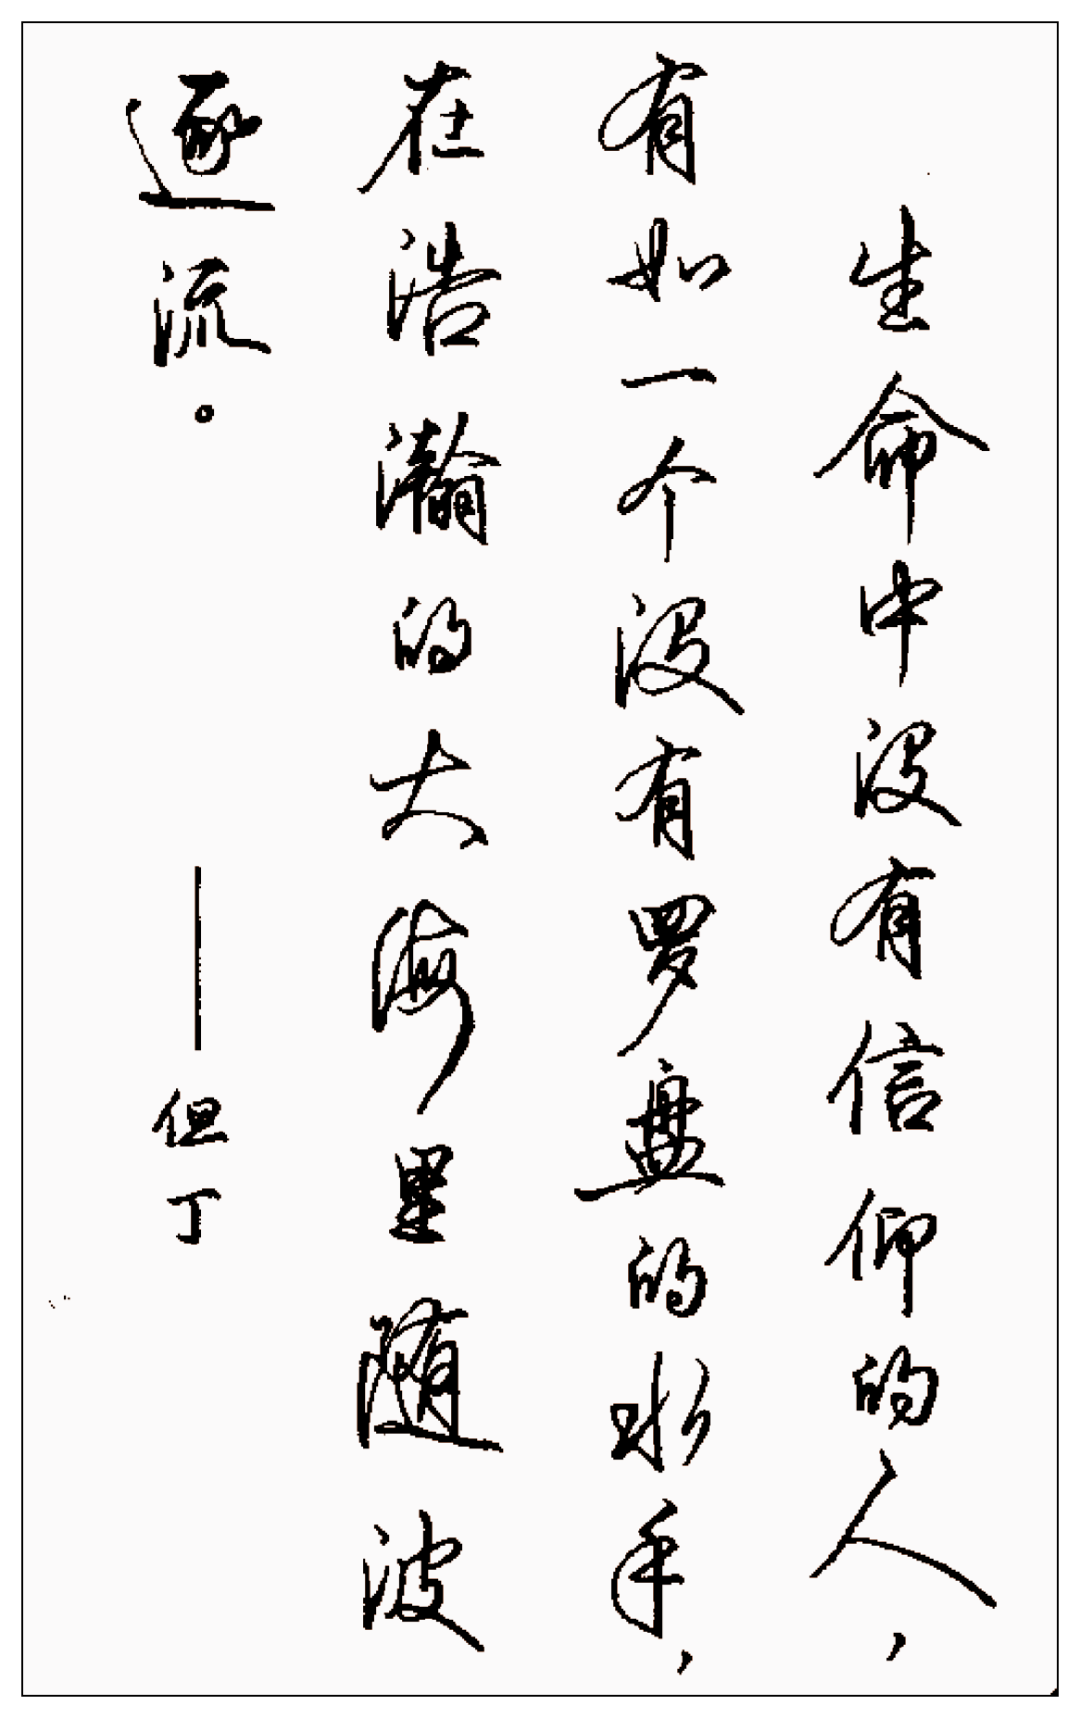 生命中没有信仰的人，
有如一个没有罗盘的水手，
在浩瀚的大海里随波
逐流。
——但丁